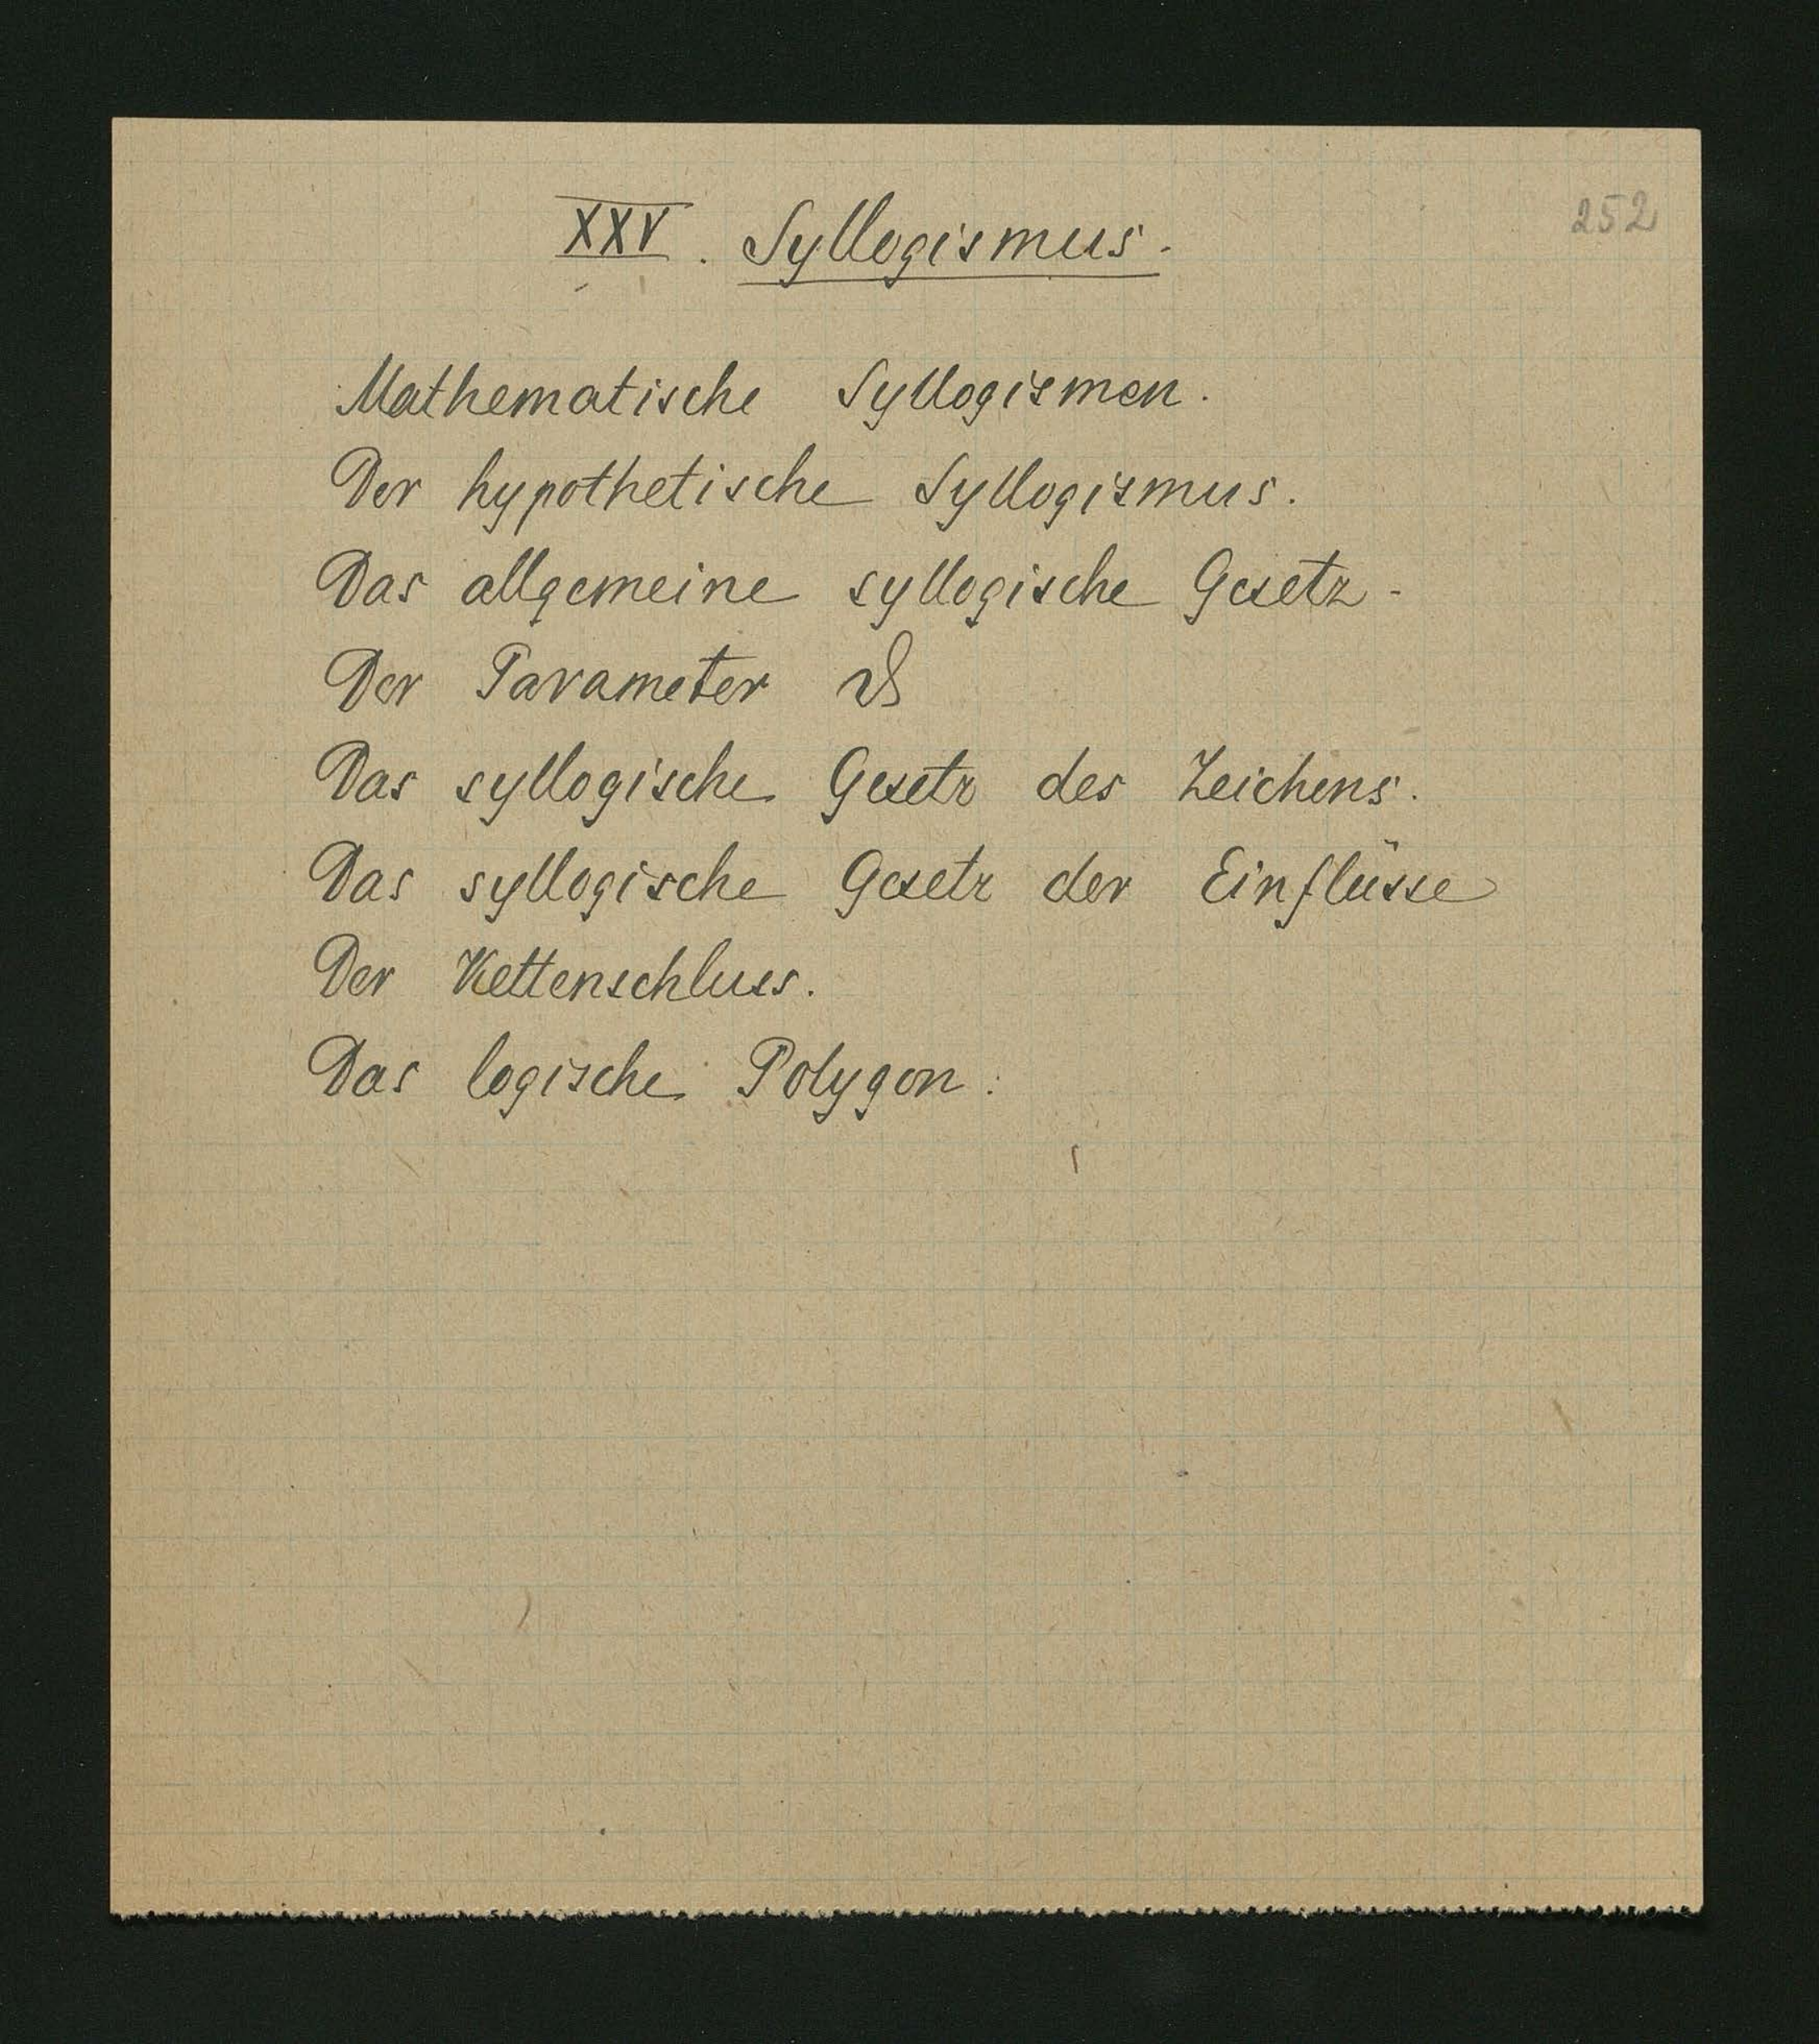 252
XXV. Syllogismus.
Mathematische Syllogismen.
Der hypothetische Syllogismus.
Das allgemeine syllogische Gesetz.
Der Parameter ϑ
Das syllogische Gesetz des Zeichens.
Das syllogische Gesetz der Einflüsse
Der Kettenschluss.
Das logische Polygon.